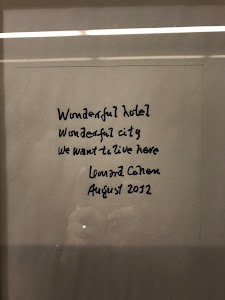 Wonderful hotel
Wonderful city
We want to live here
Leonard Cohen
August 2012